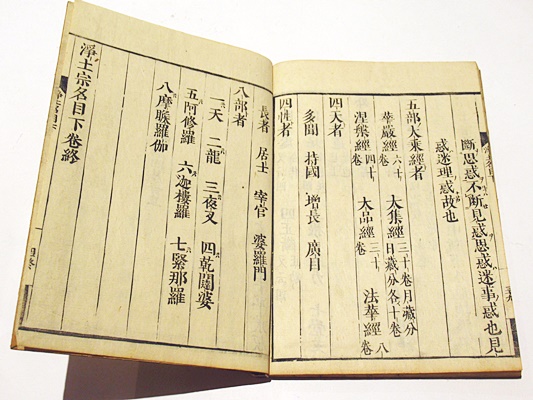 斷思惑不斷見惑思惑迷事惑也見
惑迷理惑故也
五部大乘經者
華嚴經六十卷 大集經三十卷月藏分日藏分各十卷
涅槃經四十卷 大品經三十卷 法華經八卷
四天者
多聞 持國 增長 廣目
四姓者
長者 居士 宰官 婆羅門
八部者
一天 二龍 三夜叉 四乾闥婆
五阿修羅 六迦樓羅 七緊那羅
八摩睺羅伽
淨土宗名目下卷終